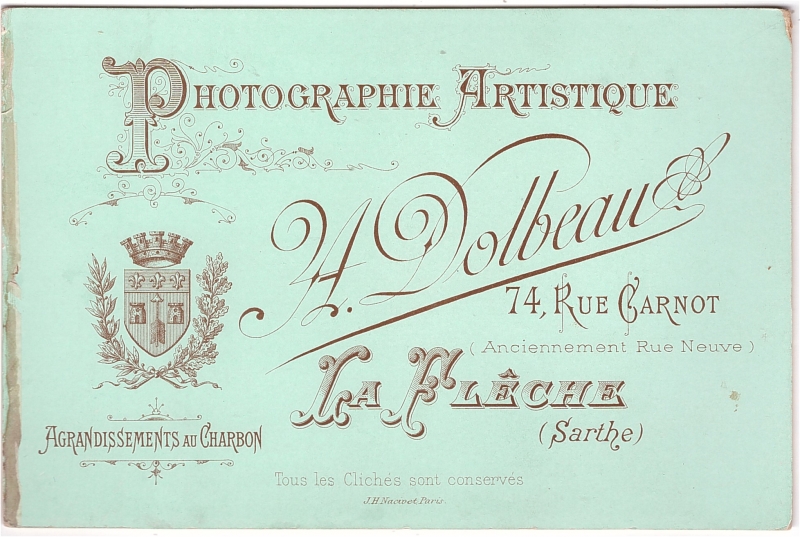 PHOTOGRAPHIE ARTISTIQUE
A. Dolbeau
74, RUE CARNOT
(Anciennement Rue Neuve)
LA FLÊCHE
(Sarthe)
AGRANDISSEMENTS AU CHARBON
Tous les Clichés sont conservés
J.H. Nacivet Paris.